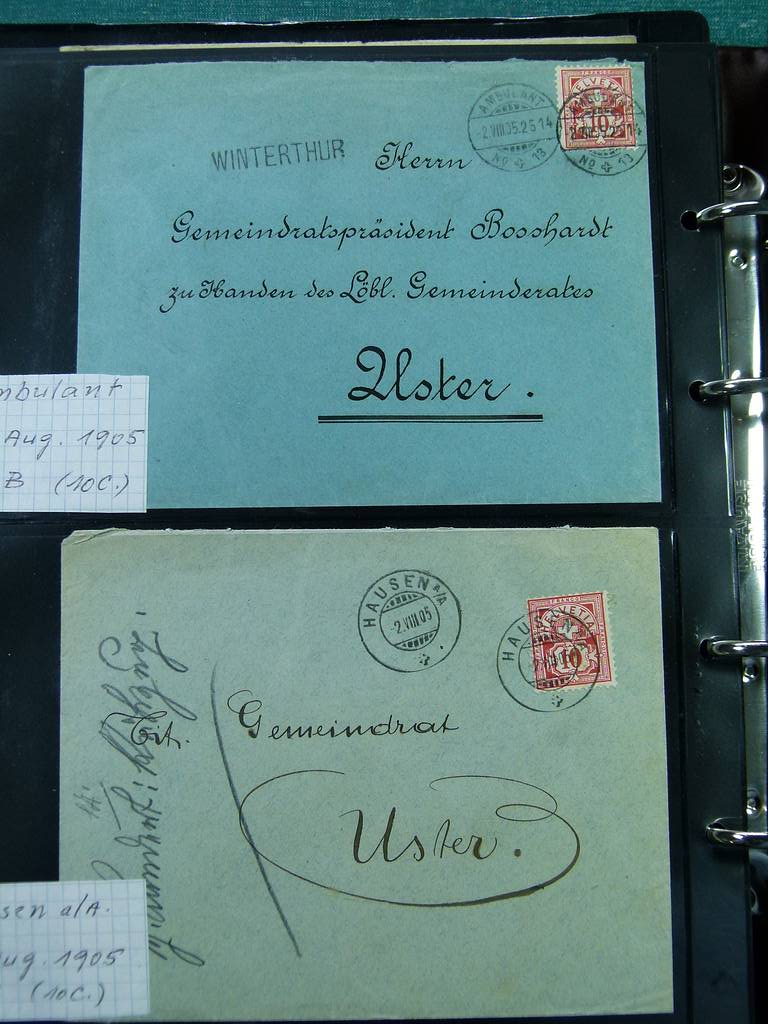 AMBULANT
-2.VIII.05.25 14
No 13
FRANCO
HELVETIA
10
No 13
WINTERTHUR
Herrn
Gemeindratspräsident Bosshardt
zu Handen des Löbl. Gemeinderates
Uster.
mbulant
Aug. 1905
B (10C.)
HAUSEN a/A
-2.VIII.05
FRANCO
HELVETIA
10
HAUS
Tit. Gemeindrat
Uster.
sen a/A.
ug. 1905
(10C.)